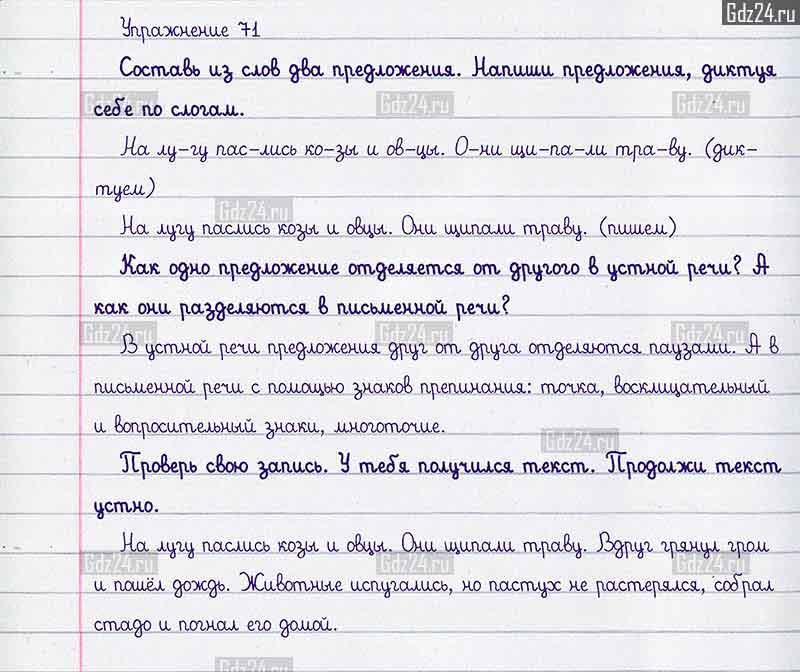 Gdz24.ru
Упражнение 71
Составь из слов два предложения. Напиши предложения, диктуя
Gdz24.ru Gdz24.ru Gdz24.ru
себе по слогам.
На лу-гу пас-лись ко-зы и ов-цы. О-ни щи-па-ли тра-ву. (дик-
туем)
Gdz24.ru
На лугу паслись козы и овцы. Они щипали траву. (пишем)
Как одно предложение отделяется от другого в устной речи? А
как они разделяются в письменной речи?
Gdz24.ru Gdz24.ru Gdz24.ru
В устной речи предложения друг от друга отделяются паузами. А в
письменной речи с помощью знаков препинания: точка, восклицательный
и вопросительный знаки, многоточие.
Gdz24.ru
Проверь свою запись. У тебя получился текст. Продолжи текст
устно.
На лугу паслись козы и овцы. Они щипали траву. Вдруг грянул гром
Gdz24.ru Gdz24.ru Gdz24.ru
и пошёл дождь. Животные испугались, но пастух не растерялся, собрал
стадо и погнал его домой.
Gdz24.ru